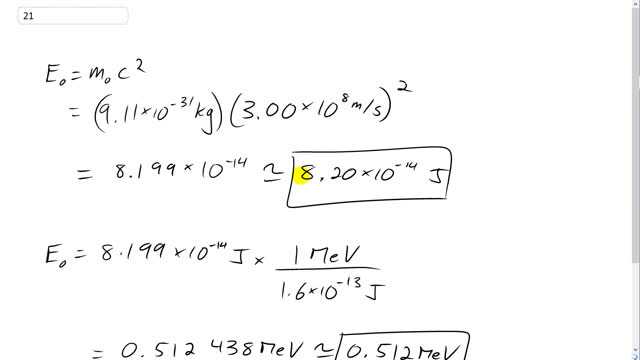 21
E₀ = m₀ c²
= (9.11 × 10⁻³¹ kg) (3.00 × 10⁸ m/s)²
= 8.199 × 10⁻¹⁴ ≃ 8.20 × 10⁻¹⁴ J
E₀ = 8.199 × 10⁻¹⁴ J × 1 MeV / 1.6 × 10⁻¹³ J
= 0.512 438 MeV ≃ 0.512 MeV